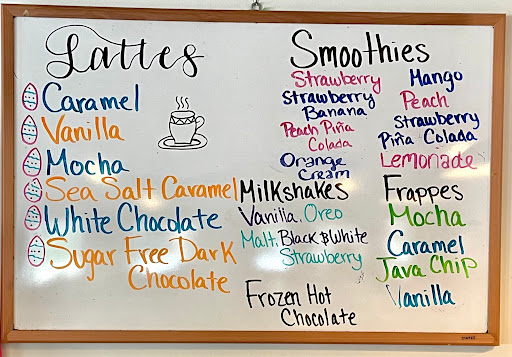 Lattes
Caramel
Vanilla
Mocha
Sea Salt Caramel
White Chocolate
Sugar Free Dark
Chocolate
Smoothies
Strawberry
Strawberry
Banana
Peach Piña
Colada
Orange
Cream
Mango
Peach
Strawberry
Piña Colada
Lemonade
Milkshakes
Vanilla, Oreo
Malt, Black & White
Strawberry
Frozen Hot
Chocolate
Frappes
Mocha
Caramel
Java Chip
Vanilla